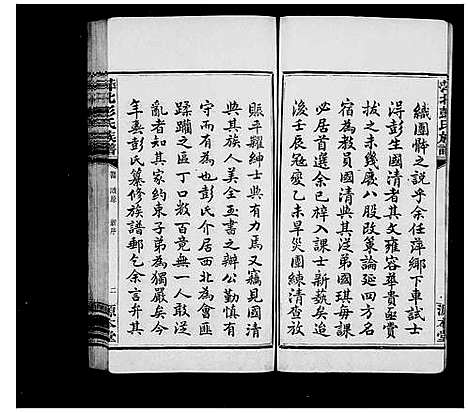 萍北彭氏族譜
織團骿之說乎余任萍鄉下車試士
得彭生國清者其文雍容華貴亟賞
拔之未幾廢八股改策論延四方名
宿為教員國清與其從弟國琪每課
必居首選余已梓入課士新藝矣迨
後壬辰冠變乙未旱災團練清查放
源本堂
賑平糶紳士與有力焉又竊見國清
與其族人美全玉書之辦公勤慎有
守而有為也彭氏介居西北為會匪
蹂躪之區丁口數百竟無一人敢從
亂者知其家約束子弟為獨嚴矣今
年春彭氏纂修族譜郵乞余言弁其
萍北彭氏族譜
二
源本堂